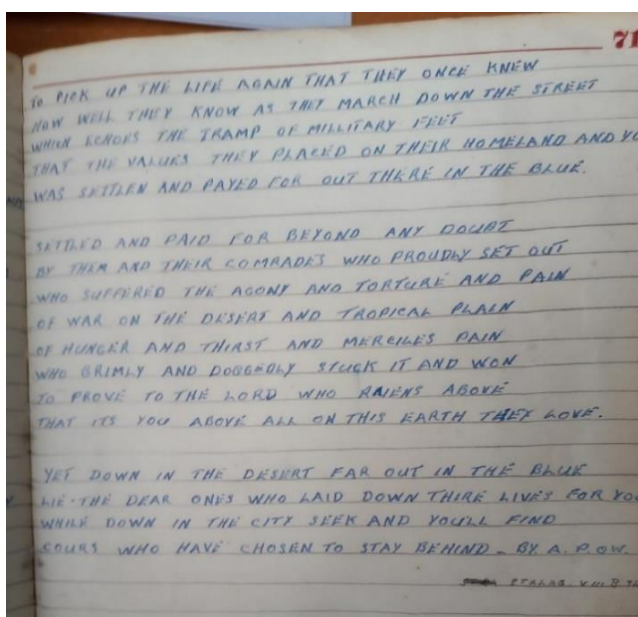 71
TO PICK UP THE LIFE AGAIN THAT THEY ONCE KNEW
HOW WELL THEY KNOW AS THEY MARCH DOWN THE STREET
WHICH ECHOES THE TRAMP OF MILLITARY FEET
THAT THE VALUES THEY PLACED ON THEIR HOMELAND AND YO
WAS SETTLEN AND PAYED FOR OUT THERE IN THE BLUE.
SETTLED AND PAID FOR BEYOND ANY DOUBT
BY THEM AND THEIR COMRADES WHO PROUDLY SET OUT
WHO SUFFERED THE AGONY AND TORTURE AND PAIN
OF WAR ON THE DESERT AND TROPICAL PLAIN
OF HUNGER AND THIRST AND MERCILES PAIN
WHO GRIMLY AND DOGGEDLY STUCK IT AND WON
TO PROVE TO THE LORD WHO RAIENS ABOVE
THAT ITS YOU ABOVE ALL ON THIS EARTH THEY LOVE.
YET DOWN IN THE DESERT FAR OUT IN THE BLUE
LIE - THE DEAR ONES WHO LAID DOWN THIRE LIVES FOR YOU
WHILE DOWN IN THE CITY SEEK AND YOU'LL FIND
WHO HAVE CHOSEN TO STAY BEHIND - BY. A. P.O.W.
STALAG. VIII.B.